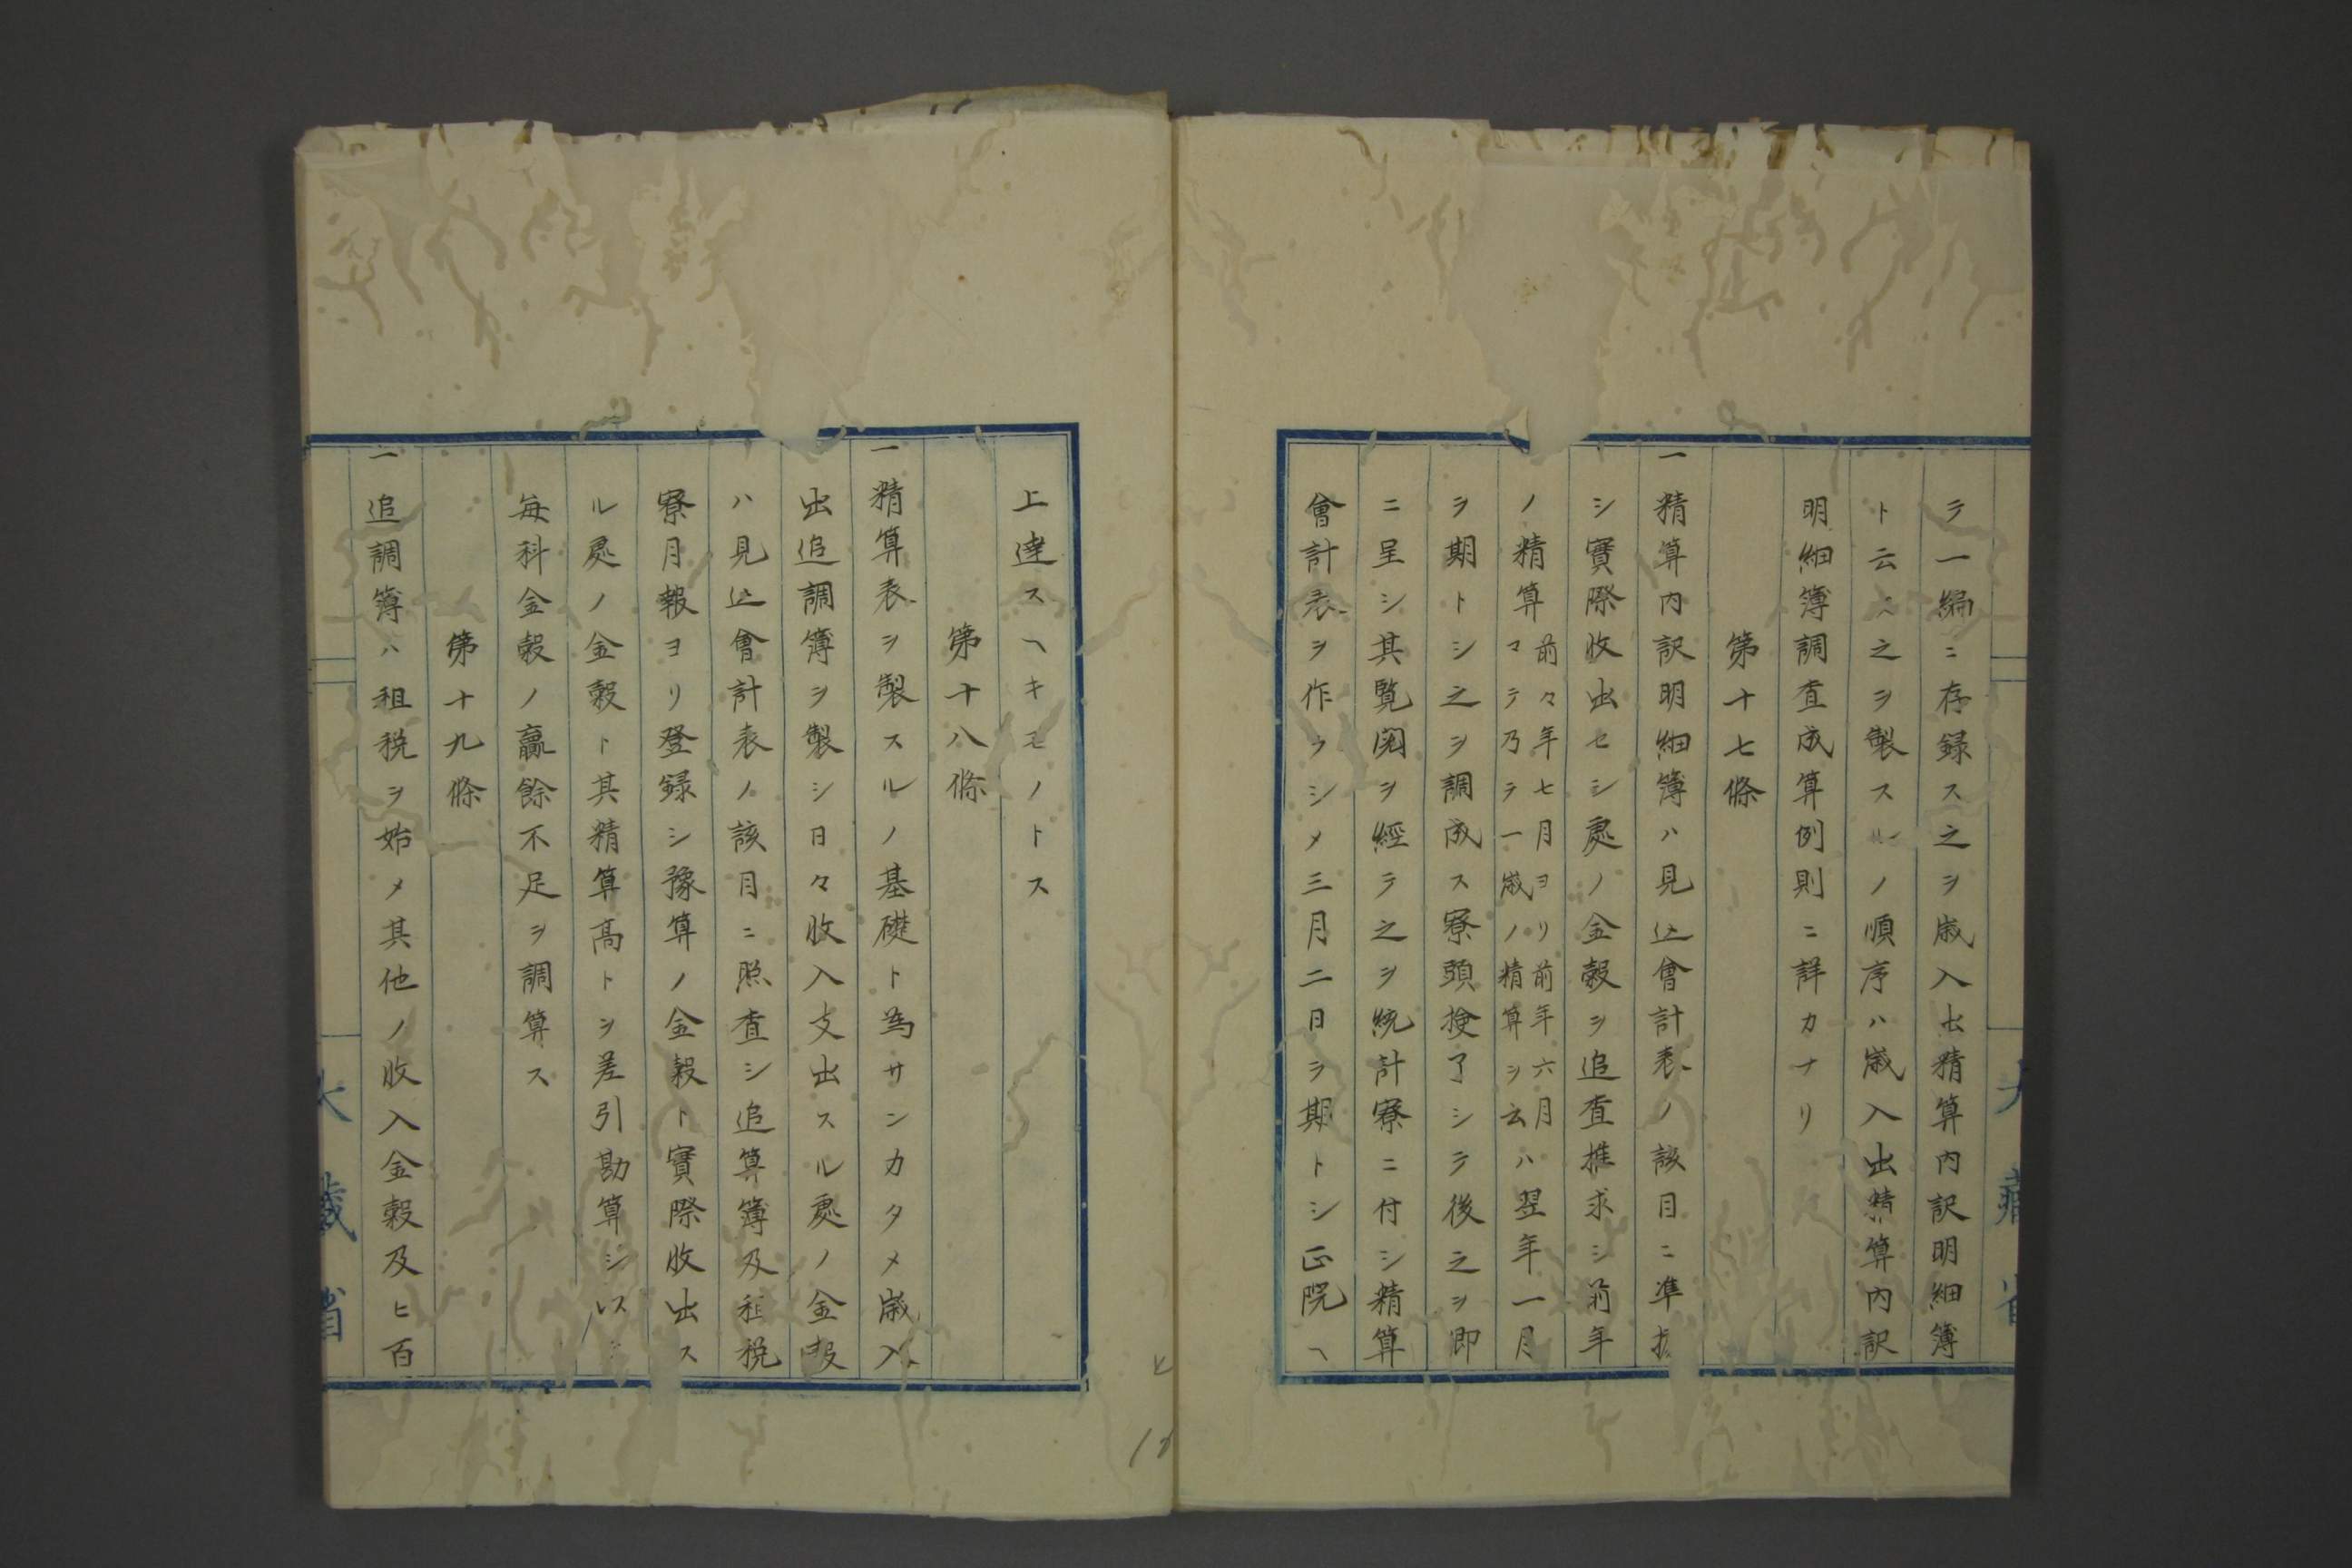 ラ一編ニ存録ス之ヲ歳入出精算内訳明細簿
ト云ヘ之ヲ製スルノ順序ハ歳入出精算内訳
明細簿調査成算例則ニ詳カナリ
第十七條
一精算内訳明細簿ハ見込會計表ノ該目ニ準拠
シ實際收出セシ處ノ金穀ヲ追査推求シ前年
ノ精算前々年七月ヨリ前年六月マテ乃ラ一歳ノ精算ヲ云ハ翌年一月
ヲ期トシ之ヲ調成ス寮頭撿了シテ後之ヲ即
ニ呈シ其覧閲ヲ經テ之ヲ統計寮ニ付シ精算
會計表ヲ作ラシメ三月二日ヲ期トシ正院ヘ
大藏省
上達スヘキモノトス
第十八條
一精算表ヲ製スルノ基礎ト為サンカタメ歳入
出追調簿ヲ製シ日々收入支出スル處ノ金穀
ハ見込會計表ノ該目ニ照査シ追算簿及租税
寮月報ヨリ登録シ豫算ノ金穀ト實際收出ス
ル處ノ金穀ト其精算高トヲ差引勘算シ
毎科金穀ノ贏餘不足ヲ調算ス
第十九條
一追調簿ハ租税ヲ始メ其他ノ收入金穀及ヒ百
大藏省